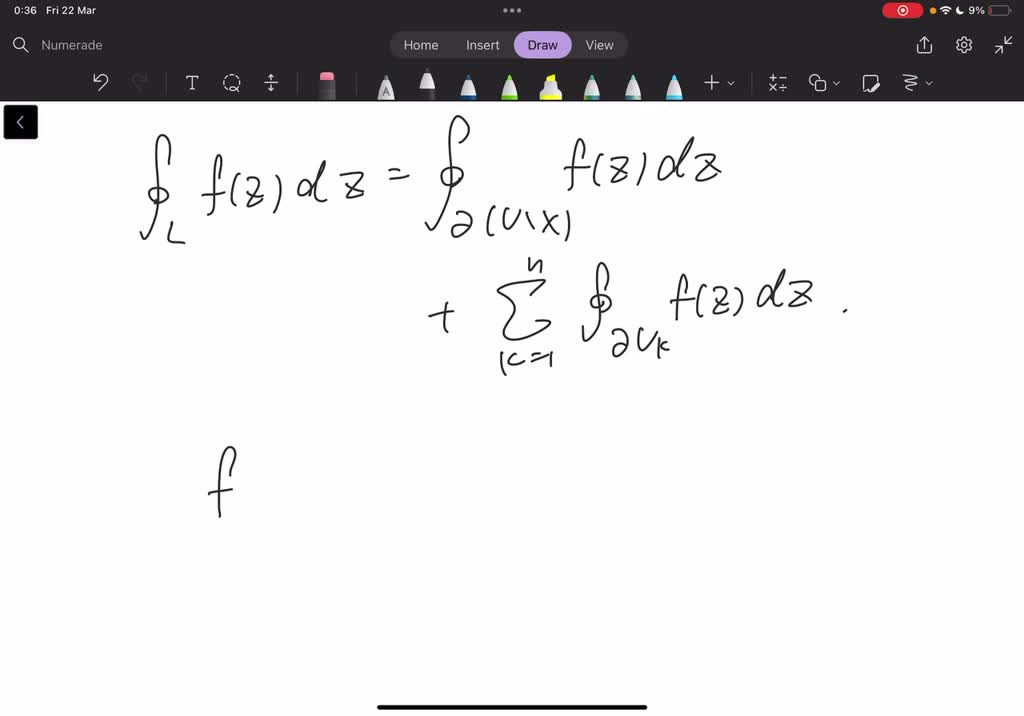 0:36 Fri 22 Mar 9%
Numerade Home Insert Draw View
T A
∮_L f(z) dz = ∮_{∂(U\X)} f(z) dz
+ ∑_{k=1}^{n} ∮_{∂U_k} f(z) dz .
f